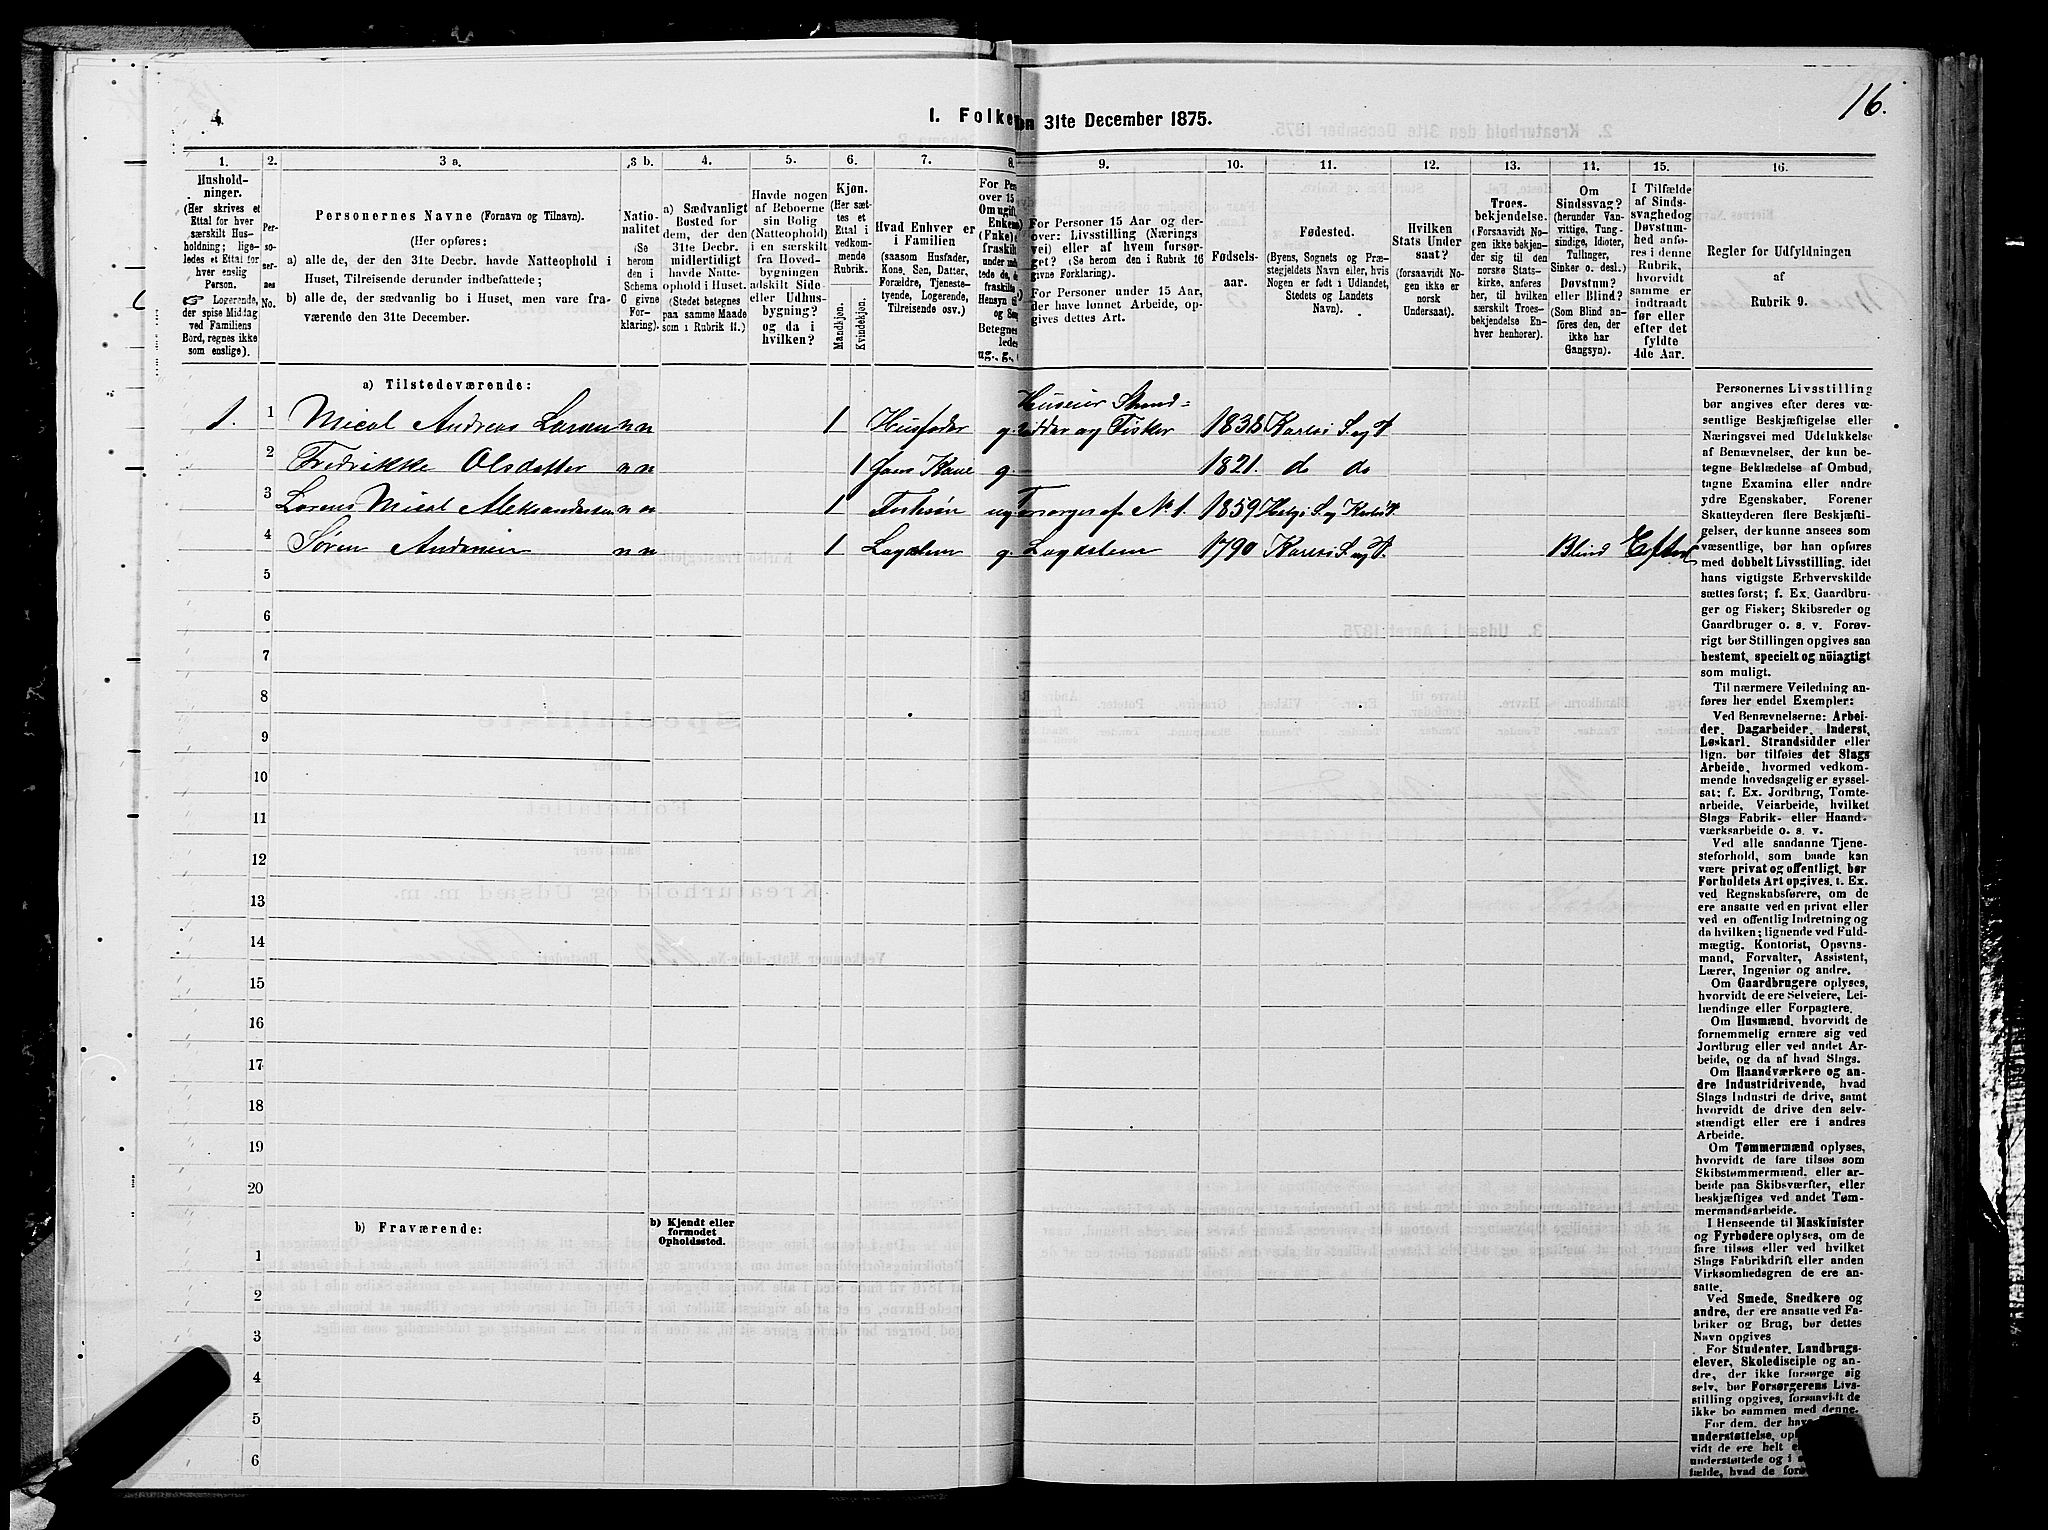 4
I. Folke
en 31te December 1875.
16.
1.
2.
3 a.
3 b.
4.
5.
6.
7.
8.
9.
10.
11.
12.
13.
14.
15.
16.
Hushold-
ninger.
(Her skrives et
Ettal for hver
særskilt Hus-
holdning; lige-
ledes et Ettal for
hver enslig
Person.
☞ Logerende,
der spise Middag
ved Familiens
Bord, regnes ikke
som enslige).
Per-
so-
ner-
nes
No.
Personernes Navne (Fornavn og Tilnavn).
(Her opføres:
a) alle de, der den 31te Decbr. havde Natteophold i
Huset, Tilreisende derunder indbefattede;
b) alle de, der sædvanlig bo i Huset, men vare fra-
værende den 31te December.
Natio-
nalitet
(Se
herom
den i
Schema
C givne
For-
klaring).
a) Sædvanligt
Bosted for
dem, der den
31te Decbr.
midlertidigt
havde Natte-
ophold i Huset.
(Stedet betegnes
paa samme Maade
som i Rubrik 11.)
Havde nogen
af Beboerne
sin Bolig
(Natteophold)
i en særskilt
fra Hoved-
bygningen
adskilt Side-
eller Udhus-
bygning?
og da i
hvilken?
Kjøn.
(Her sæt-
tes et
Ettal i
vedkom-
mende
Rubrik.
Mandkjøn.
Kvindekjøn.
Hvad Enhver er
i Familien
(saasom Husfader,
Kone, Søn, Datter,
Forældre, Tjeneste-
tyende, Logerende,
Tilreisende osv.)
For Pers
over 15
Om ugift,
Enkem
(Fnke)
fraskilt
ug., g.,
For Personer 15 Aar og der-
over: Livsstilling (Nærings
vei) eller af hvem forsør-
get? (Se herom den i Rubrik 16
givne Forklaring).
For Personer under 15 Aar,
der have lønnet Arbeide, op-
gives dettes Art.
Fødsels-
aar.
Fødested.
(Byens, Sognets og Præ-
stegjeldets Navn eller, hvis
Nogen er født i Udlandet,
Stedets og Landets
Navn).
Hvilken
Stats Under
saat?
(forsaavidt No-
gen ikke er
norsk
Undersaat).
Troes-
bekjendelse.
(Forsaavidt No-
gen ikke bekjen-
der sig til den
norske Stats-
kirke, anføres
her, til hvilken
særskilt Troes-
bekjendelse En-
hver henhører).
Om
Sindssvag?
(herunder Van-
vittige, Tung-
sindige, Idioter,
Tullinger,
Sinker o. desl.)
Døvstum?
eller Blind?
(Som Blind an-
føres den, der
ikke har
Gangsyn).
I Tilfælde
af Sinds-
svaghedog
Døvstum-
hed anfø-
res i denne
Rubrik,
hvorvidt
samme er
indtraadt
før eller
efter det
fyldte
4de Aar.
Regler for Udfyldningen
af
Rubrik 9.
a) Tilstedeværende:
1. 1 Mical Andreas Larsen n n 1 Husfader g. Huseier Strand=
sidder og Fisker 1838 Karlsö S. og P.
2 Fredrikke Olsdatter n n 1 hans Kone g. 1821. do do
3 Lorens Mical Aleksandersen n n 1 Fostersön ug. Forsørges af No 1. 1859 Helgø S. og Karlsö P.
4 Søren Andersen n n 1 Lægdslem g. Lægdslem 1790 Karlsö S. og P. Blind Efter
5
6
7
8
9
10
11
12
13
14
15
16
17
18
19
20
b) Fraværende:
b) Kjendt eller
formodet
Opholdssted.
1
2
3
4
5
6
Personernes Livsstilling
bør angives efter deres væ-
sentlige Beskjæftigelse eller
Næringsvei med Udelukkelse
af Benævnelser, der kun be-
tegne Beklædelse af Ombud,
tagne Examina eller andre
ydre Egenskaber. Forener
Skatteyderen flere Beskjæfti-
gelser, der kunne ansees som
væsentlige, bør han opføres
med dobbelt Livsstilling, idet
hans vigtigste Erhvervskilde
sættes først; f. Ex. Gaardbru-
ger og Fisker; Skibsreder og
Gaardbruger o. s. v. Forøv-
rigt bør Stillingen opgives saa
bestemt, specielt og nöiagtigt
som muligt.
Til nærmere Veiledning an-
føres her endel Exempler:
Ved Benævnelserne: Arbei-
der, Dagarbeider, Inderst,
Løskarl, Strandsidder eller
lign. bør tilføies det Slags
Arbeide, hvormed vedkom-
mende hovedsagelig er syssel-
sat; f. Ex. Jordbrug, Tomte-
arbeide, Veiarbeide, hvilket
Slags Fabrik- eller Haand-
værksarbeide o. s. v.
Ved alle saadanne Tjene-
steforhold, som baade kan
være privat og offentligt, bør
Forholdets Art opgives, t. Ex.
ved Regnskabsførere, om de
ere ansatte ved en privat eller
ved en offentlig Indretning og
da hvilken; lignende ved Fuld-
mægtig, Kontorist, Opsyns-
mand, Forvalter, Assistent,
Lærer, Ingeniør og andre.
Om Gaardbrugere oplyses,
hvorvidt de ere Selveiere, Lei-
lændinge eller Forpagtere.
Om Husmænd, hvorvidt de
fornemmelig ernære sig ved
Jordbrug eller ved andet Ar-
beide, og da af hvad Slags.
Om Haandværkere og an-
dre Industridrivende, hvad
Slags Industri de drive, samt
hvorvidt de drive den selv-
stændigt eller ere i andres
Arbeide.
Om Tømmermænd oplyses,
hvorvidt de fare tilsøs som
Skibstømmermænd, eller ar-
beide paa Skibsværfter, eller
beskjæftiges ved andet Tøm-
mermandsarbeide.
I Henseende til Maskinister
og Fyrbødere oplyses, om de
fare tilsøs eller ved hvilket
Slags Fabrikdrift eller anden
Virksomhedsgren de ere an-
satte.
Ved Smede, Snedkere og
andre, der ere ansatte ved Fa-
briker og Brug, bør dettes
Navn opgives
For Studenter, Landbrugs-
elever, Skoledisciple og an-
dre, der ikke forsørge sig
selv, bør Forsørgerens Livs-
stilling opgives, forsaavidt de
ikke bo sammen med denne.
For dem, der have
understøttelse, op
vidt de ere helt e
understøttede og i
fælde, hvad de for